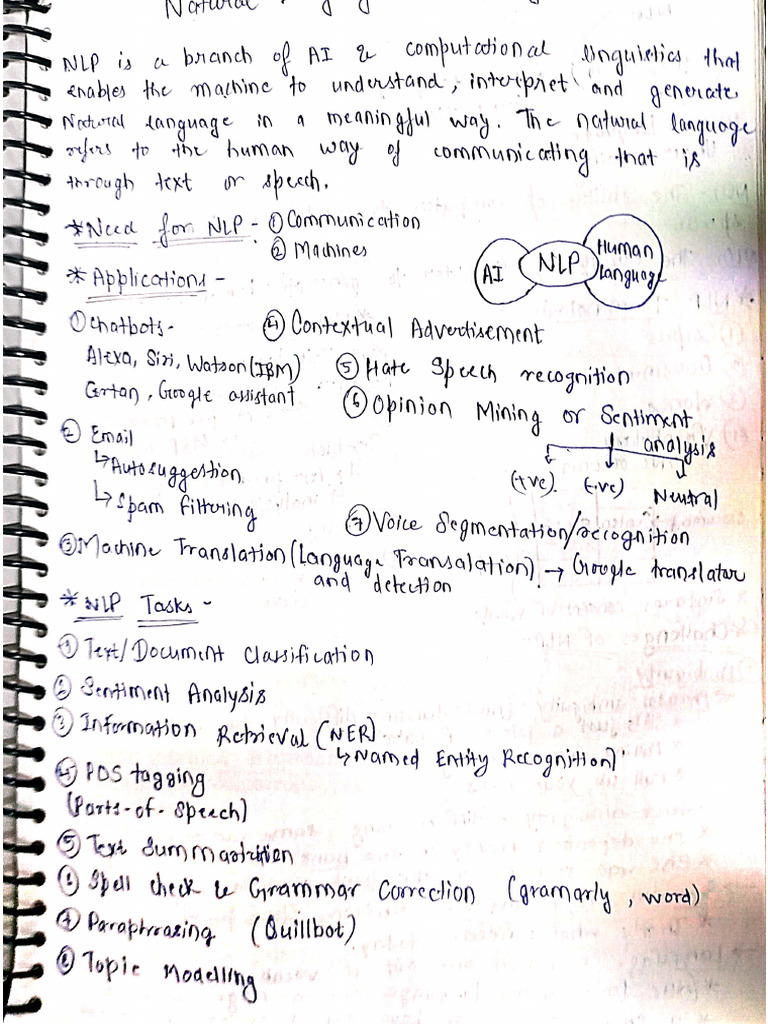 Natural
NLP is a branch of AI & computational linguistics that
enables the machine to understand, interpret and generate
Natural language in a meaningful way. The natural language
refers to the human way of communicating that is
through text or speech.
* Need for NLP - ① Communication
② Machines
AI NLP Human
Language
* Applications -
① Chatbots -
Alexa, Siri, Watson (IBM)
Cortan, Google assistant
② Email
↳ Autosuggestion
↳ Spam Filtering
④ Contextual Advertisement
⑤ Hate Speech recognition
⑥ Opinion Mining or Sentiment
analysis
(+ve) (-ve) Neutral
⑦ Voice Segmentation/recognition
③ Machine Translation (Language Transalation) → Google translator
and detection
* NLP Tasks -
① Text/Document Classification
② Sentiment Analysis
③ Information Retrieval (NER)
↳ Named Entity Recognition)
④ POS tagging
(Parts-of-Speech)
⑤ Text Summarization
⑥ Spell check & Grammar Correction (gramarly, word)
⑦ Paraphrasing (Quillbot)
⑧ Topic Modelling